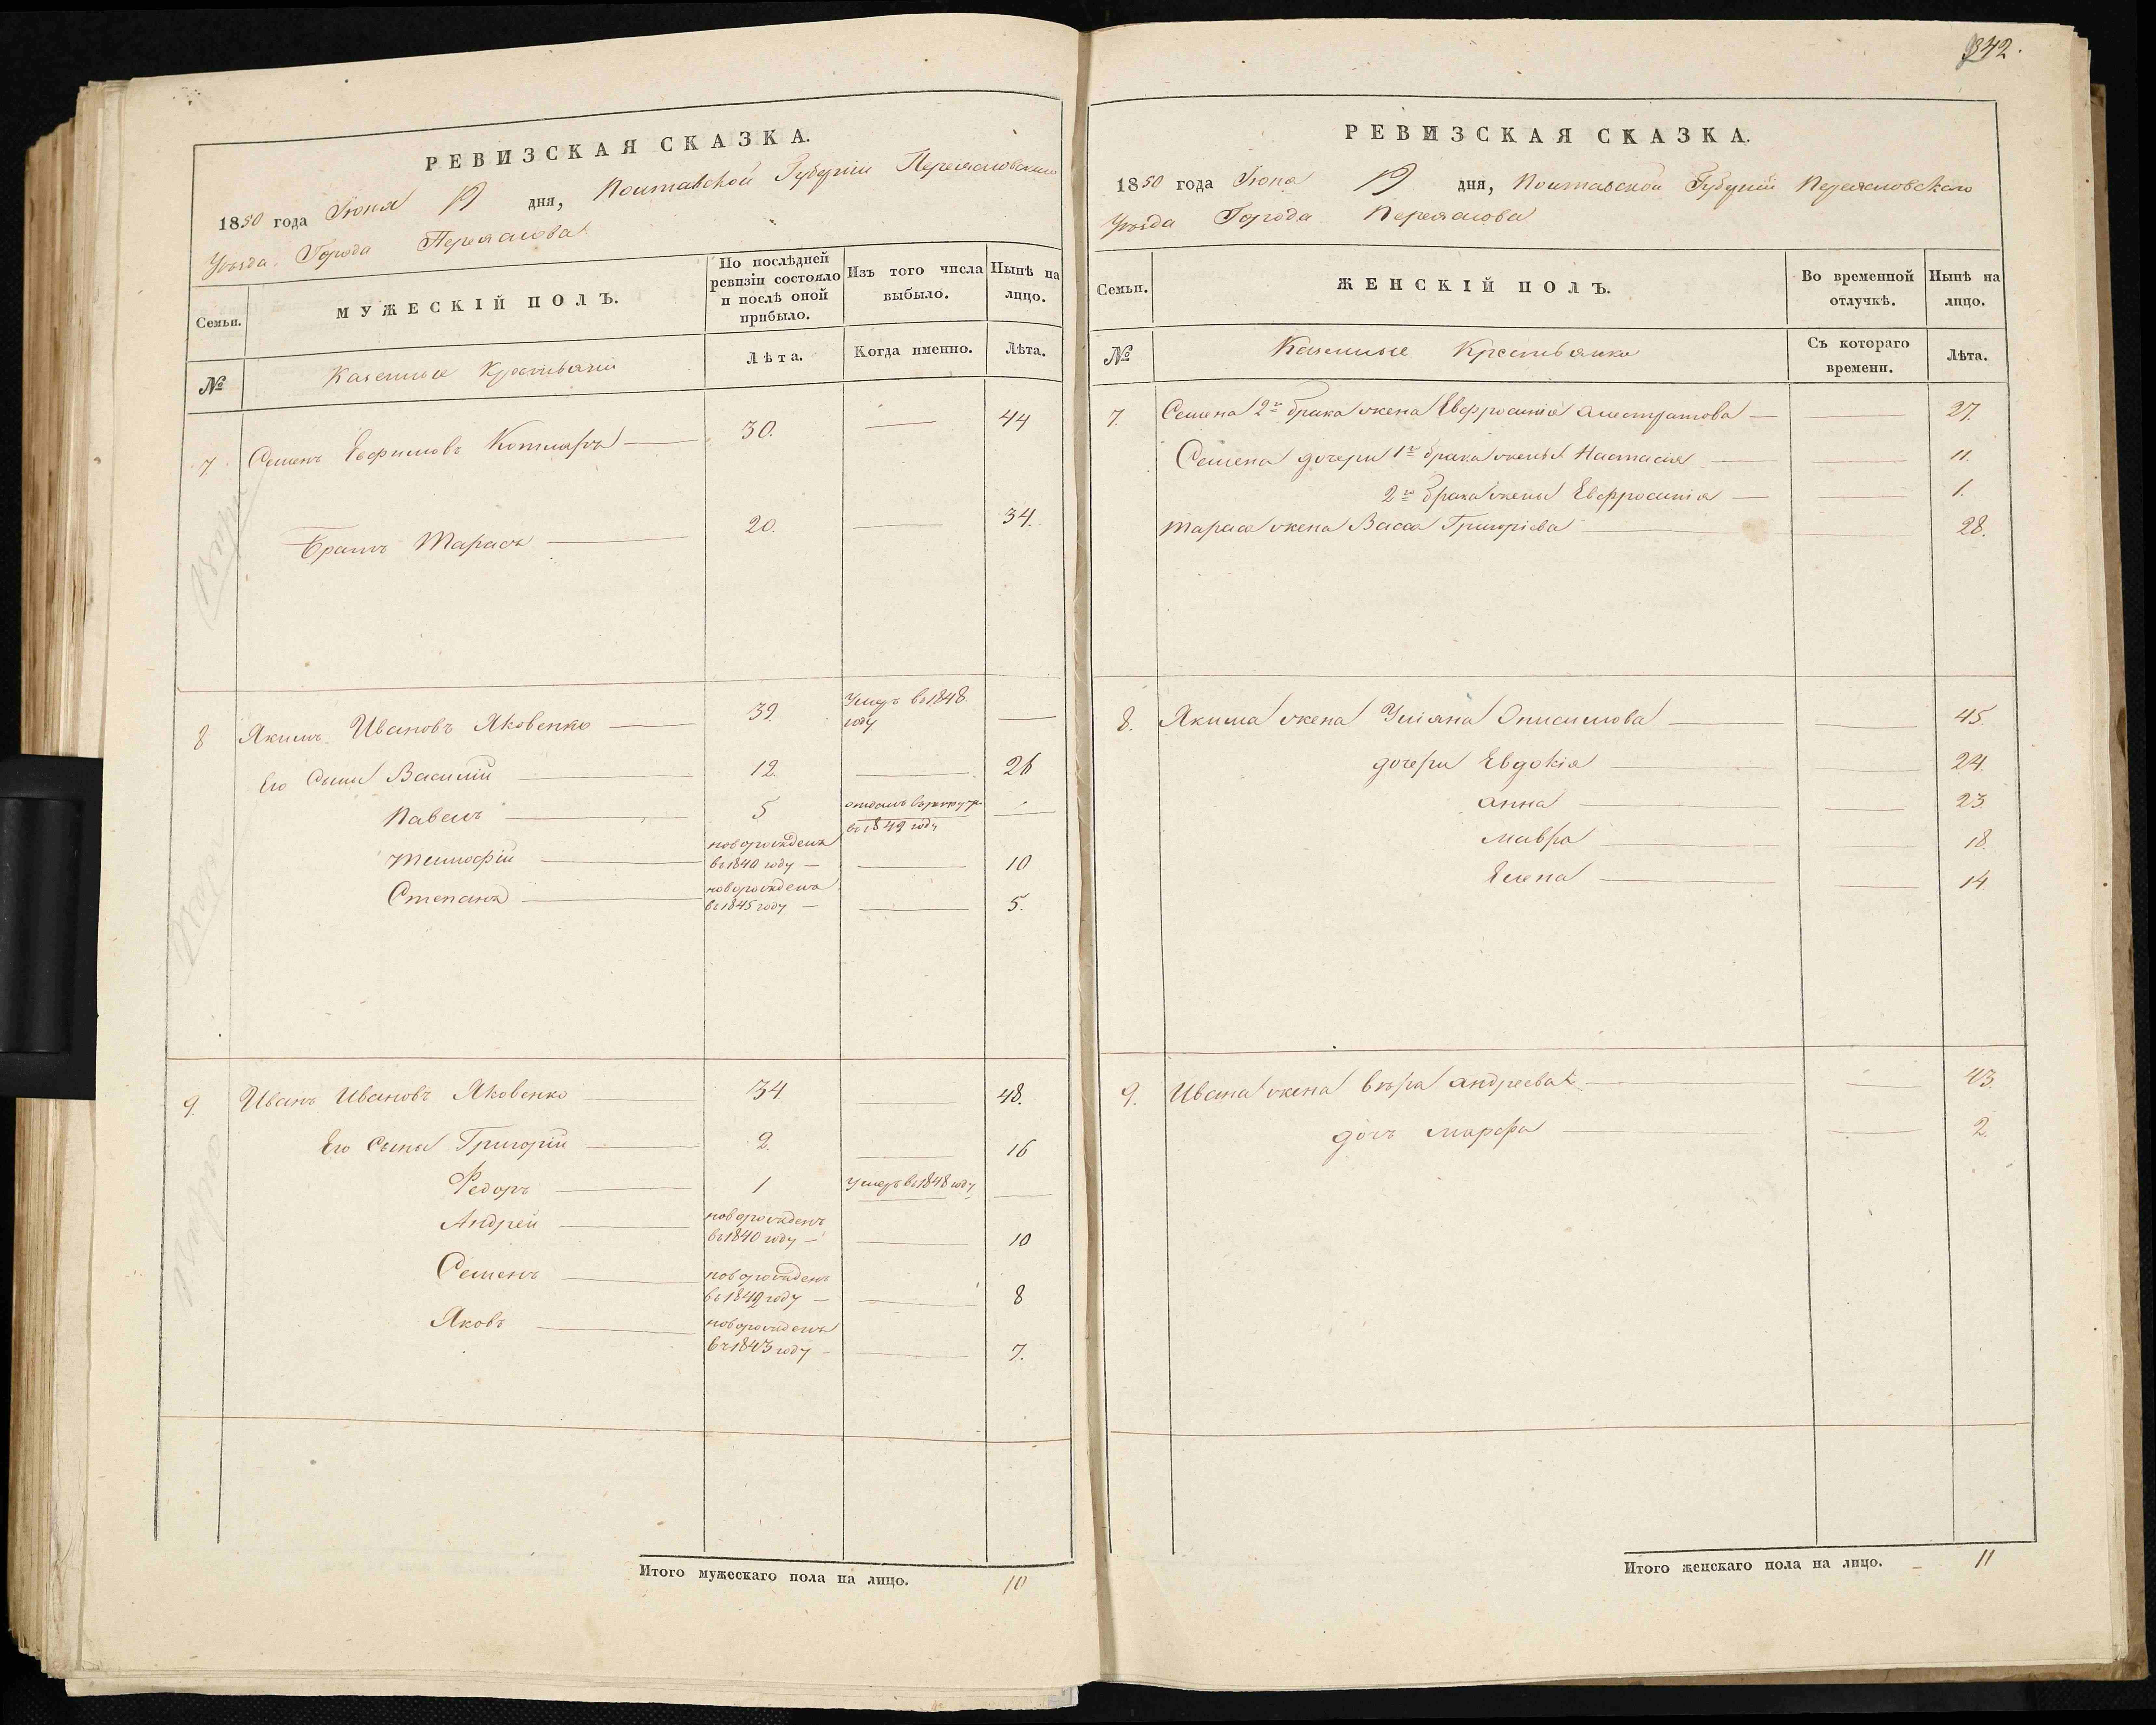 РЕВИЗСКАЯ СКАЗКА.
1850 года Іюня 19 дня, Полтавской Губерніи Переяславскаго
Уѣзда. Города Переяслова.
Семьи.
МУЖЕСКІЙ ПОЛЪ.
По послѣдней ревизіи состояло и послѣ оной прибыло.
Изъ того числа выбыло.
Нынѣ на лицо.
№
Казенные Крестьяне
Лѣта.
Когда именно.
Лѣта.
7 Семенъ Евфимовъ Котляръ — 30. — 44
Братъ Тарасъ — 20. — 34.
8 Якимъ Ивановъ Яковенко — 39. Умеръ въ 1848 году —
Его Сыны Василій — 12. — 26
Павелъ — 5 отданъ въ рекруты въ 1849 году —
Тимофій — новорожденъ въ 1840 году — — 10
Степанъ — новорожденъ въ 1845 году — — 5.
9. Иванъ Ивановъ Яковенко — 34. — 48.
Его Сыны Григорій — 2. — 16
Федоръ — 1 Умеръ въ 1848 году —
Андрей — новорожденъ въ 1840 году — — 10
Семенъ — новорожденъ въ 1842 году — — 8
Яковъ — новорожденъ въ 1843 году — — 7.
Итого мужескаго пола на лицо. 10
342.
РЕВИЗСКАЯ СКАЗКА.
1850 года Іюня 19 дня, Полтавской Губерніи Переясловскаго
Уѣзда Города Переяслова
Семьи.
ЖЕНСКІЙ ПОЛЪ.
Во временной отлучкѣ.
Нынѣ на лицо.
№
Казенные Крестьянки
Съ котораго времени.
Лѣта.
7. Семена 2го брака жена Евфросинія — — 27.
Семена дочери 1го брака жены Настасія — — 11.
2го брака жены Евфросинія — — 1.
Тараса жена Васса Григоріева — — 28.
8. Якима жена Уліяна Онисимова — — 45.
дочери Евдокія — — 24.
Анна — — 23
Мавра — — 18.
Елена — — 14.
9. Ивана жена Вѣра Андреева — — 43.
дочь Марфа — — 2.
Итого женскаго пола на лицо. — 11